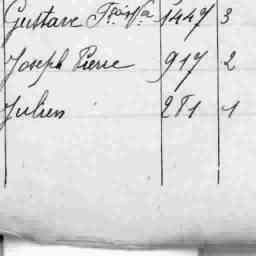 Gustave Fçois 1447 3
Joseph Pierre 917 2
Julien 281 1